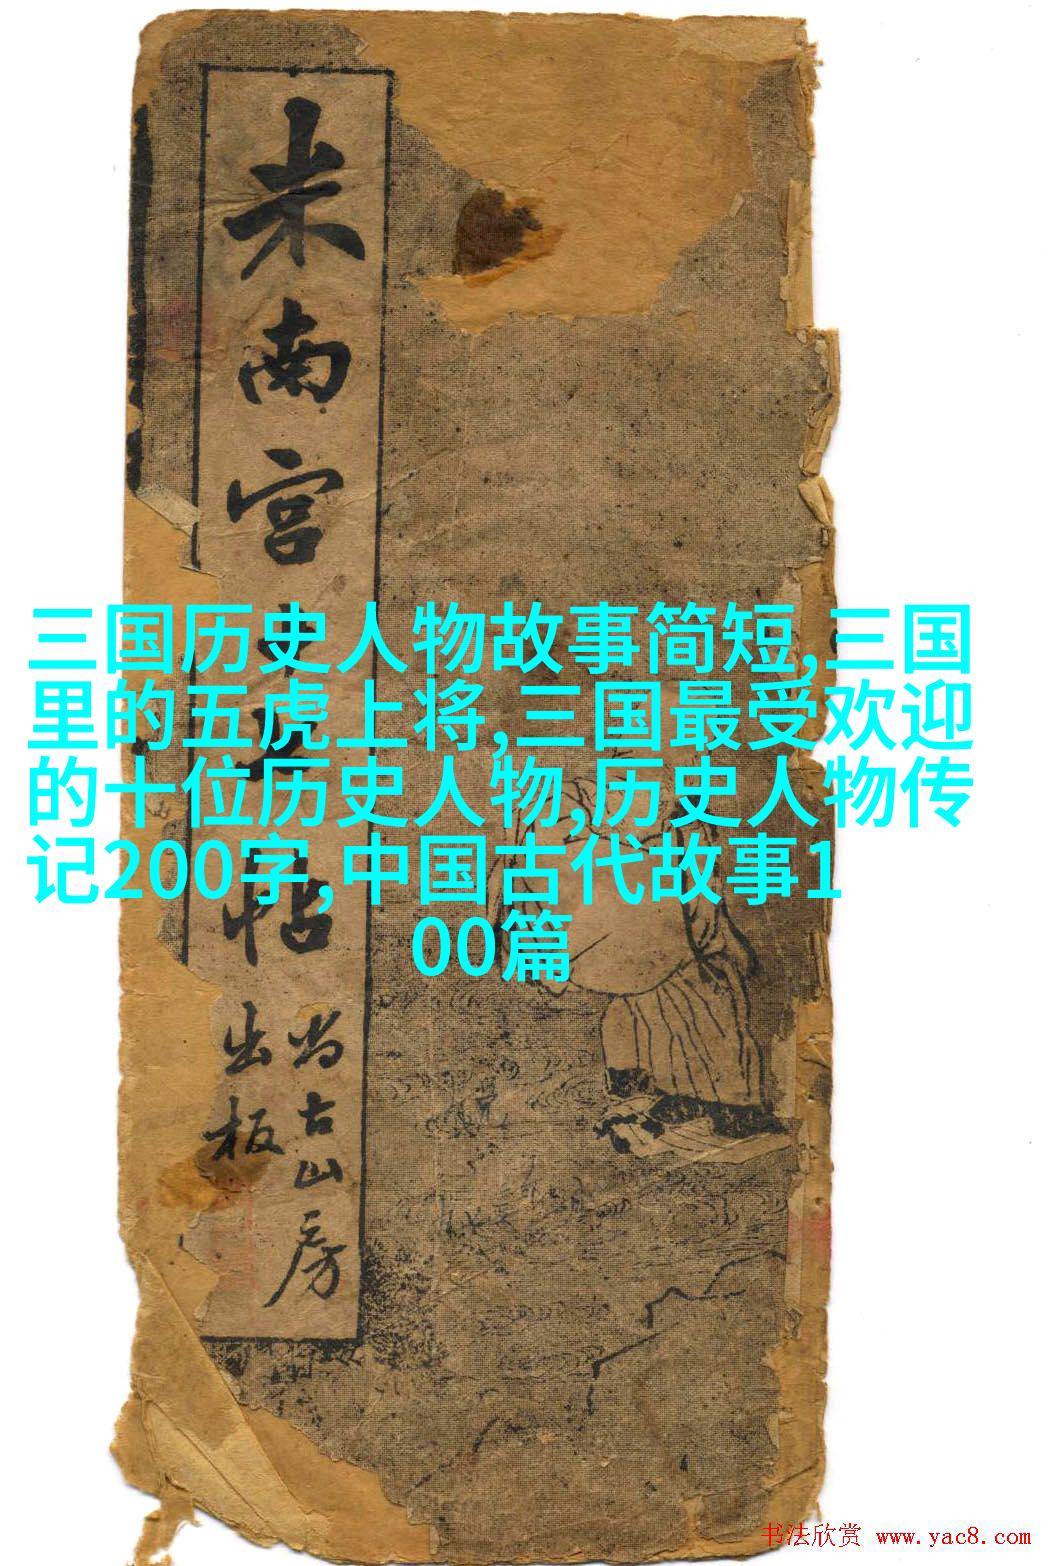 三国历史人物故事简短,三国
里的五虎上将,三国最受欢迎
的十位历史人物,历史人物传
记200字,中国古代故事1
00篇
米南宫十七帖
尚古山房
出板
书法欣赏 www.yac8.com